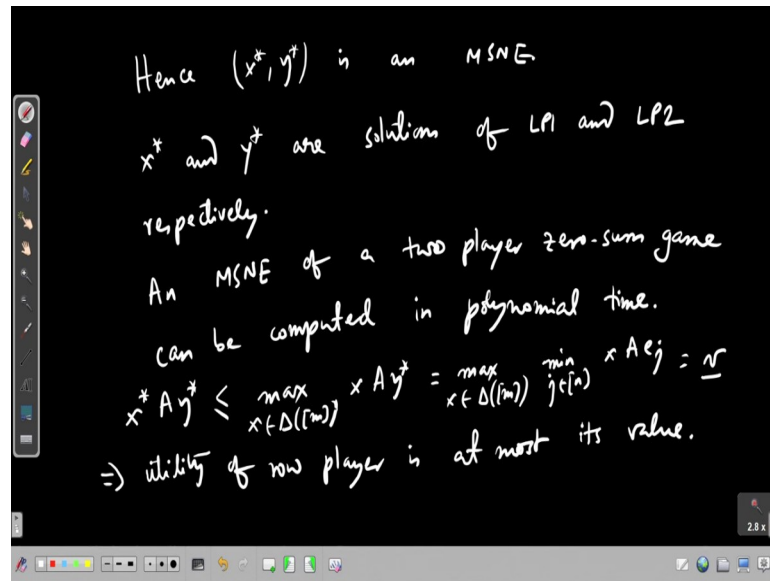 Hence (x*, y*) is an MSNE.
x* and y* are solutions of LP1 and LP2
respectively.
An MSNE of a two player zero-sum game
can be computed in polynomial time.
x* A y* ≤ max x∈Δ([m]) x A y* = max x∈Δ([m]) min j∈[n] x A e_j = v
⇒ utility of row player is at most its value.
2.8 x